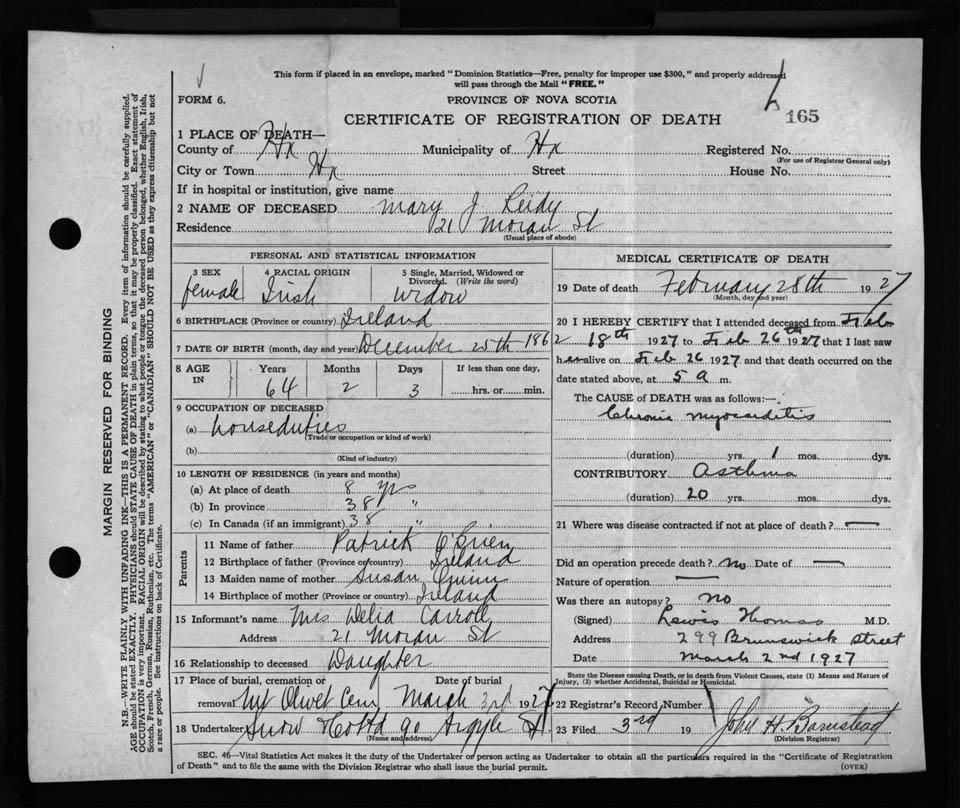 This form if placed in an envelope, marked "Dominion Statistics—Free, penalty for improper use $300," and properly addressed
will pass through the Mail "FREE."
FORM 6.
PROVINCE OF NOVA SCOTIA
CERTIFICATE OF REGISTRATION OF DEATH
165
1 PLACE OF DEATH—
County of Hx Municipality of Hx Registered No.
(For use of Registrar General only)
City or Town Hx Street House No.
If in hospital or institution, give name
2 NAME OF DECEASED Mary J. Reidy
Residence 21 Moran St
(Usual place of abode)
PERSONAL AND STATISTICAL INFORMATION
3 SEX 4 RACIAL ORIGIN 5 Single, Married, Widowed or
Divorced. (Write the word)
female Irish widow
6 BIRTHPLACE (Province or country) Ireland
7 DATE OF BIRTH (month, day and year) December 25th 1862
8 AGE IN Years Months Days If less than one day,
64 2 3 hrs. or min.
9 OCCUPATION OF DECEASED
(a) houseduties
(Trade or occupation or kind of work)
(b)
(Kind of industry)
10 LENGTH OF RESIDENCE (in years and months)
(a) At place of death 8 yrs
(b) In province 38 "
(c) In Canada (if an immigrant) 38 "
Parents
11 Name of father Patrick O'Brien
12 Birthplace of father (Province or country) Ireland
13 Maiden name of mother Susan Quinn
14 Birthplace of mother (Province or country) Ireland
15 Informant's name Mrs Delia Carroll
Address 21 Moran St
16 Relationship to deceased Daughter
17 Place of burial, cremation or Date of burial
removal Mt Olivet Cem March 3rd 1927
18 Undertaker Snow & Co Ltd 90 Argyle St
(Name and address)
MEDICAL CERTIFICATE OF DEATH
19 Date of death February 28th 1927
(Month, day and year)
20 I HEREBY CERTIFY that I attended deceased from Feb
18th 1927 to Feb 26th 1927 that I last saw
her alive on Feb 26 1927 and that death occurred on the
date stated above, at 5 a m.
The CAUSE of DEATH was as follows:—
Chronic myocarditis
(duration) yrs. 1 mos. dys.
CONTRIBUTORY Asthma
(duration) 20 yrs. mos. dys.
21 Where was disease contracted if not at place of death? —
Did an operation precede death? no Date of —
Nature of operation —
Was there an autopsy? no
(Signed) Lewis Thomas M.D.
Address 299 Brunswick Street
Date March 2nd 1927
State the Disease causing Death, or in Death from Violent Causes, state (1) Means and Nature of
Injury, (2) whether Accidental, Suicidal or Homicidal.
22 Registrar's Record Number
23 Filed 3rd 19 John H. Barnstead
(Division Registrar)
SEC. 46—Vital Statistics Act makes it the duty of the Undertaker or person acting as Undertaker to obtain all the particulars required in the "Certificate of Registration
of Death" and to file the same with the Division Registrar who shall issue the burial permit.
(OVER)
MARGIN RESERVED FOR BINDING
N.B.—WRITE PLAINLY WITH UNFADING INK—THIS IS A PERMANENT RECORD. Every item of information should be carefully supplied.
AGE should be stated EXACTLY. PHYSICIANS should STATE CAUSE OF DEATH in plain terms, so that it may be properly classified. Exact statement of
OCCUPATION is very important. RACIAL ORIGIN will be described by stating to what people or tongue the deceased person belonged, whether English, Irish,
Scotch, French, German, Russian, Ruthenian, etc. The terms "AMERICAN" or "CANADIAN" SHOULD NOT BE USED as they express citizenship but not
a race or people. See instructions on back of Certificate.